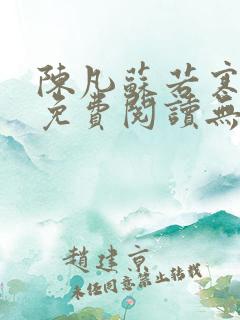 陳凡蘇若寒
免費閱讀無
趙建京
未經同意禁止轉載